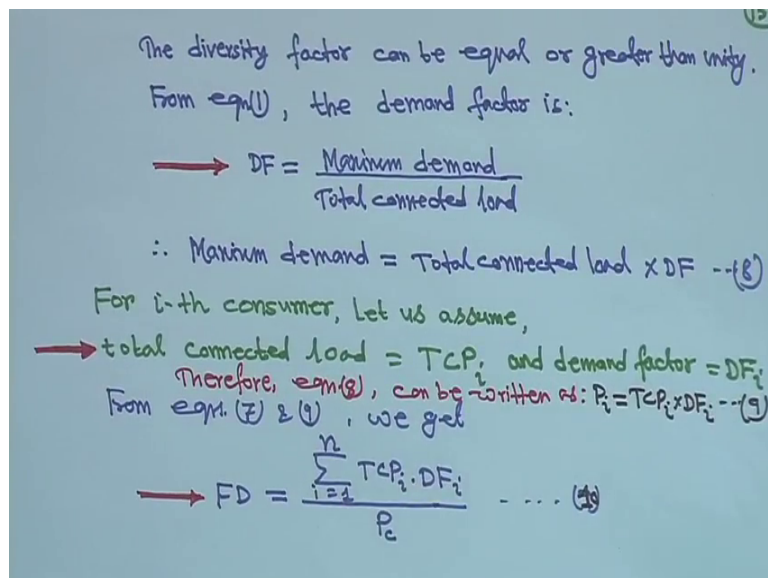 The diversity factor can be equal or greater than unity.
From eqn(1), the demand factor is:
DF = Maximum demand / Total connected load
∴ Maximum demand = Total connected load × DF --(8)
For i-th consumer, Let us assume,
total connected load = TCPᵢ and demand factor = DFᵢ
Therefore, eqn(8), can be written as: Pᵢ = TCPᵢ × DFᵢ --(9)
From eqns. (7) & (9), we get
FD = ∑ᵢ₌₁ⁿ TCPᵢ · DFᵢ / P_c ---- (10)